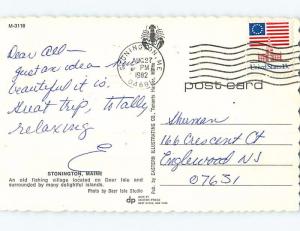 M-3118
STONINGTON, ME
AUG 27
PM
1982
04681
Dear All—
Just an idea how
beautiful it is.
Great trip, Totally
relaxing
E
post card
Shuman
166 Crescent Ct
Englewood NJ
07631
STONINGTON, MAINE
An old fishing village located on Deer Isle and
surrounded by many delightful islands.
Photo by Deer Isle Studio
dp